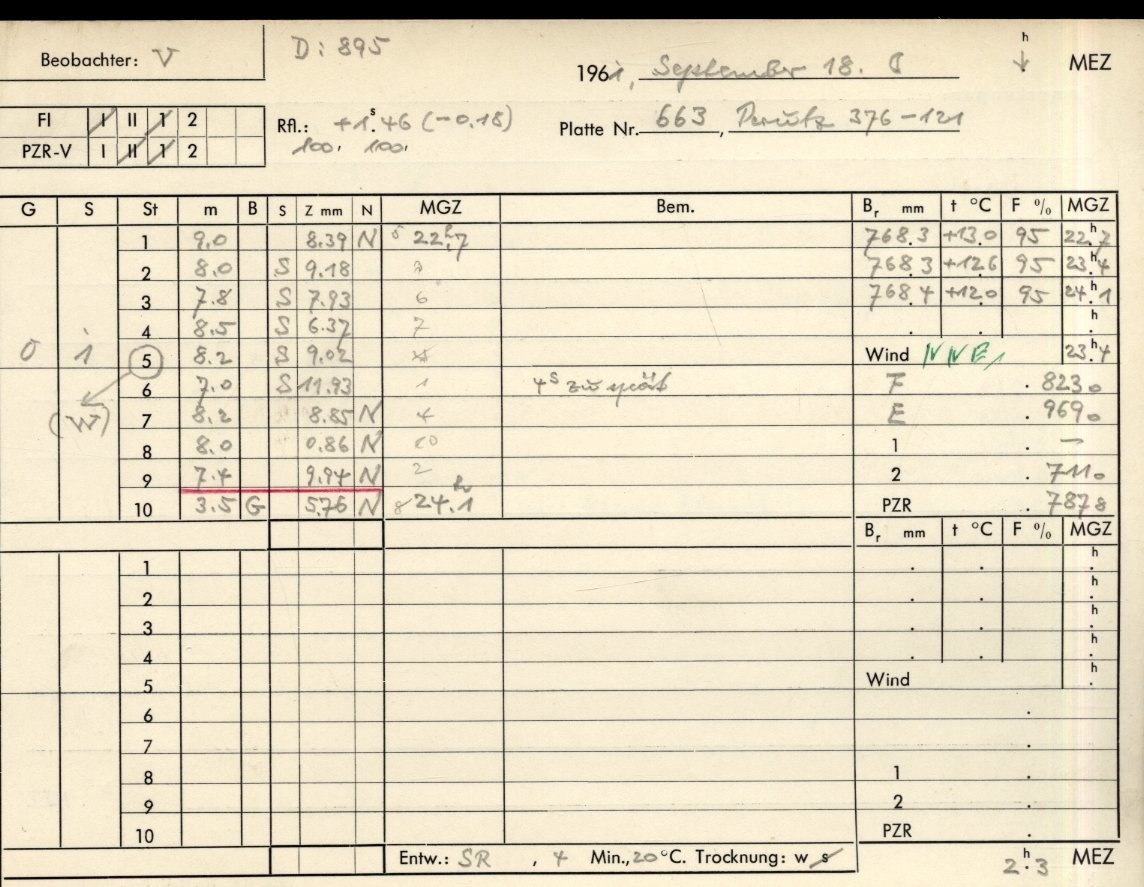 Beobachter: V D: 895 1961, September 18. h MEZ
FI I II 1 2 Rfl.: +1.ˢ46 (-0.18) Platte Nr. 663, Perutz 376-121
PZR-V I II 1 2 100, 100,
G S St m B S Z mm N MGZ Bem. Bᵣ mm t °C F % MGZ
1 9.0 8.39 N 22.ʰ7 768.3 +13.0 95 22.ʰ7
2 8.0 S 9.18 768.3 +12.6 95 23.ʰ4
3 7.8 S 7.93 6 768.4 +12.0 95 24.ʰ1
4 8.5 S 6.37 7 . . h .
0 i 5 8.2 S 9.02 Wind NNE, 23.ʰ4
6 7.0 S 11.93 1 4ˢ zu spät F . 823 0
(W) 7 8.2 8.85 N 4 E . 969 0
8 8.0 0.86 N 10 1 . —
9 7.4 9.94 N 2 2 . 711 0
10 3.5 G 5.76 N 8 24.ʰ1 PZR . 787 8
Bᵣ mm t °C F % MGZ
1 . . h .
2 . . h .
3 . . h .
4 . . h .
5 Wind h .
6 .
7
8 1 .
9 2 .
10 PZR .
Entw.: SR , 4 Min., 20 °C. Trocknung: w s 2.ʰ3 MEZ